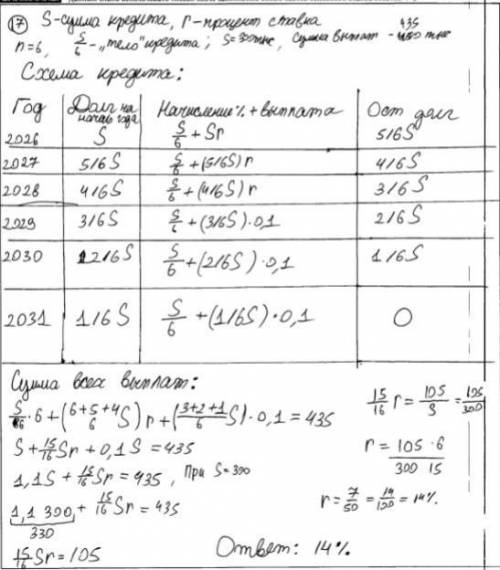 17 S-сумма кредита, r-процент ставка
n=6, S/6 - „тело" кредита; S=300тыс, сумма выплат - 435 тыс
Схема кредита:
Год Долг на начало года Начисление% + выплата Ост долг
2026 S S/6 + Sr 5/6S
2027 5/6S S/6 + (5/6S)r 4/6S
2028 4/6S S/6 + (4/6S)r 3/6S
2029 3/6S S/6 + (3/6S)·0,1 2/6S
2030 2/6S S/6 + (2/6S)·0,1 1/6S
2031 1/6S S/6 + (1/6S)·0,1 0
Сумма всех выплат:
S/6·6 + (6+5+4/6 S)r + (3+2+1/6 S)·0,1 = 435
S + 15/16 Sr + 0,1S = 435
1,1S + 15/16 Sr = 435, При S=300
1,1 300 + 15/16 Sr = 435
330
15/16 Sr = 105
15/16 r = 105/S = 105/300
r = 105·6/300 15
r = 7/50 = 14/100 = 14%
Ответ: 14%